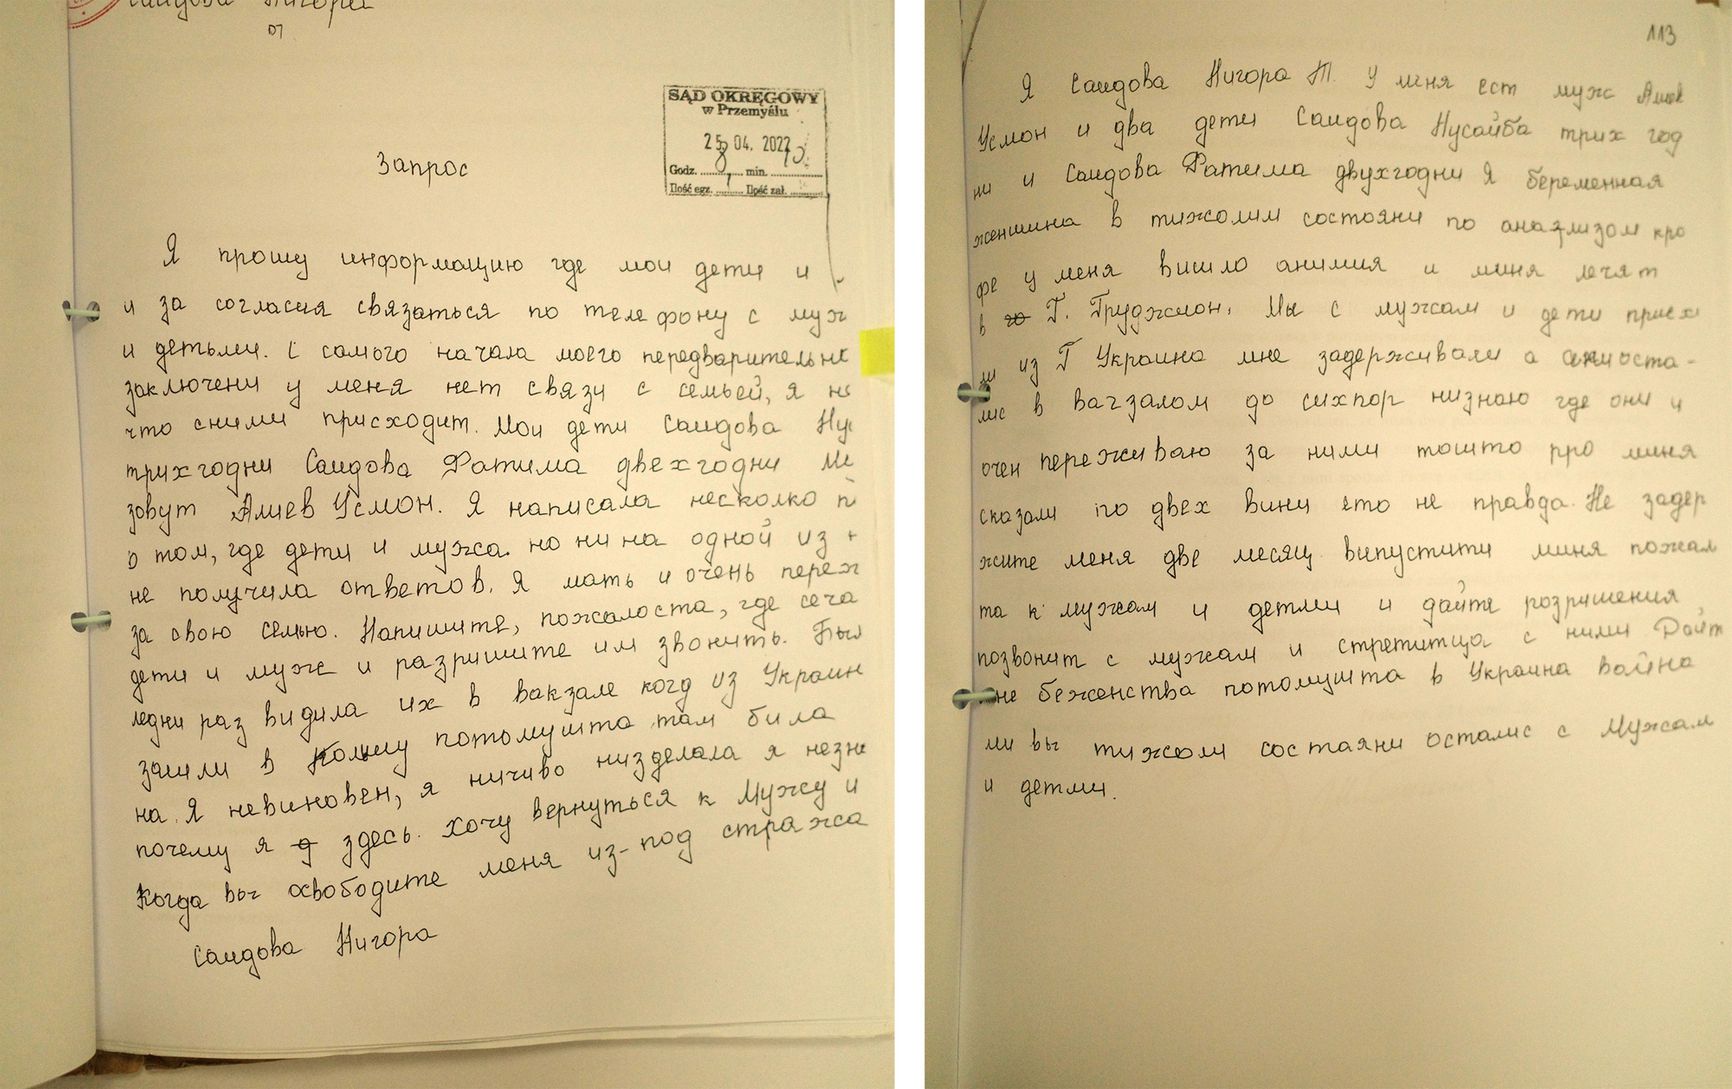 Саидова Нигора
07
SĄD OKRĘGOWY
w Przemyślu
04. 2022
Godz. min.
Ilość egz. Ilość zał.
Запрос
Я прошу информацию где мои дети и
и за согласия связаться по телефону с муж
и детьми. С самого начала моего передварительно
заключени у меня нет связи с семьей, я не
что сними присходит. Мои дети Саидова Нус
трихгодни Саидова Фатима двехгодни
зовут Алиев Усмон. Я написала несколко п
о том, где дети и мужа но ни на одной из
не получила ответов. Я мать и очень переж
за свою семью. Напишите, пожалоста, где сеча
дети и муж и разришите им звонить. Был
ледни раз видила их в вакзале когд из Украин
заили в Полшу потомушто там била
на. Я невиновен, я ничиво низделала я незна
почему я здесь. Хочу вернуться к Мужу и
Когда вы освободите меня из-под стража
Саидова Нигора
113
Я Саидова Нигора Т. У меня ест муж Алиев
Усмон и два дети Саидова Нусайба трих год
ни и Саидова Фатима двухгодни Я беременная
женшина в тижолим состояни по анализом кро
фе у меня вишло анимия и миня лечят
в Г. Груджион. Мы с мужам и дети приех
ли из Г Украина мне задерживали а они оста-
лис в вагзалом до сихпор низнаю где они и
очен переживаю за ними тошто про миня
сказали што двех вини ето не правда. Не задер
жите меня две месящ випустити миня пожал
та к мужам и детми и дайте розришения
позвонит с мужам и стретитца с ними Дайт
мне беженства потомушта в Украина война
ми вы тижоли состаяни осталис с Мужам
и детми.